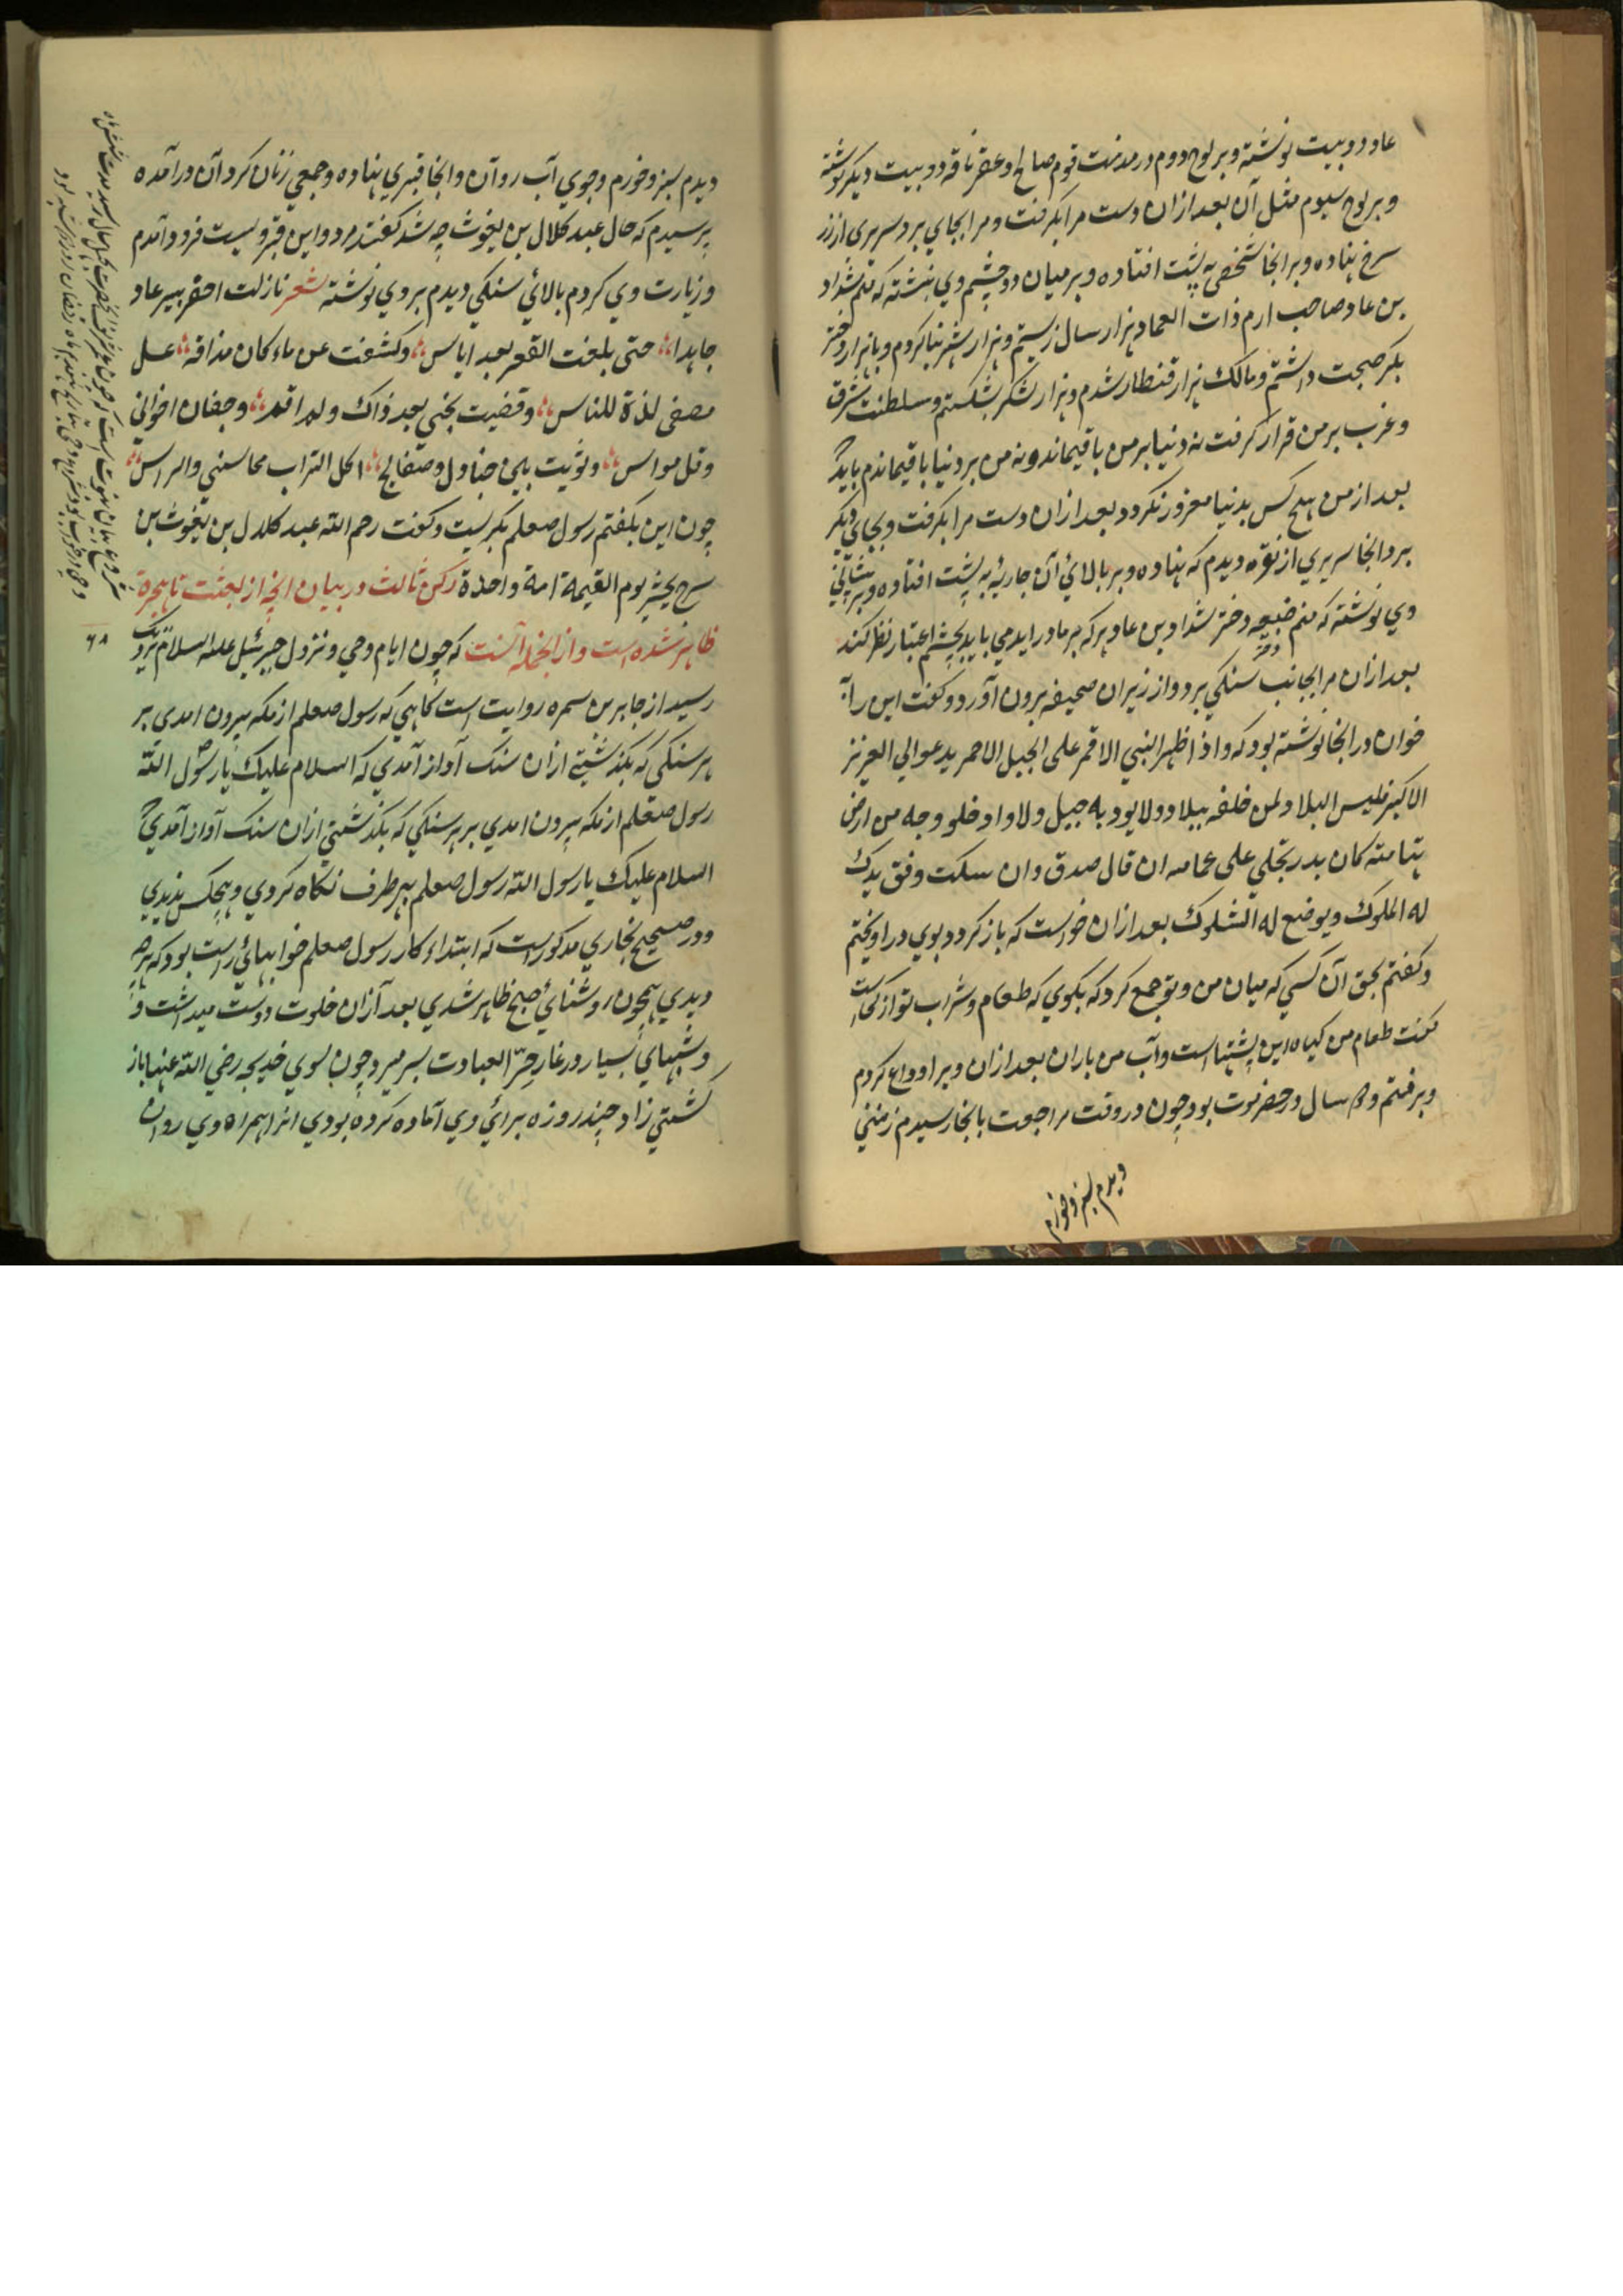 عاد دو بیت نوشته و بر لوح دوم در مذمت قوم صالح و عقر ناقه دو بیت دیکر نوشته
و بر لوح سیوم مثل آن بعد ازان دست مرا بکرفت و مرا بجای برد سریری از زر
سرخ نهاده و بر انجا شخصی به پشت افتاده و بر میان دو چشم وی نبشته که منم شداد
بن عاد صاحب ارم ذات العماد هزار سال زیستم و هزار شهر بنا کردم و با هزار دختر
بکر صحبت داشتم و مالک هزار قنطار شدم و هزار لشکر بشکستم و سلطنت شرق
و غرب بر من قرار کرفت نه دنیا بر من باقیماند و نه من بر دنیا باقیماندم باید که
بعد از من هیچ کس بدنیا مغرور نکردد بعد ازان دست مرا بکرفت و بجای دیکر
برد انجا سریری از نقره دیدم که نهاده و بر بالائ آن جاریهٔ به پشت افتاده و بر پیشانی
وی نوشته که منم ضبیعه دختر شداد بن عاد هر که بر ما در اید می باید بچشم اعتبار نظر کند
بعد ازان مرا بجانب سنکی برد و از زیر ان صحیفه برون آورد و کفت این را
خوان در انجا نوشته بود که و اذا ظهر النبي الاقمر علی الجبل الاحمر یدعو الي العزیز
الاکبر فلیس البلاد ولمن خلفه ببلاد ولا یود به جبیل ولا واد خلو وجه من ارض
بتامته کان بدر تجلي علی عمامه ان قال صدق وان سکت وفق یدک
له الملوک و یوضع له الشلوک بعد ازان خواست که باز کردد بوی در اویختم
و کفتم بحق آن کسی که میان من و تو جمع کرد که بکوی که طعام و شراب تو از کجاست
کفت طعام من کیاه این پشتها است و آب من باران بعد ازان ویرا وداع کردم
و برفتم و سال در حضرموت بود چون در وقت مراجعت بانجا رسیدم زمینی
دیدم سبز و خورم
دیدم سبز و خورم و جوی آب روان و انجا قبری نهاده و جمعی زنان کرد آن در آمده
پرسیدم که حال عبد کلال بن یغوث چه شد کفتند مرد و این قبر ویست فرود آمدم
و زیارت وی کردم بالائ سنکی دیدم بر وی نوشته شعر نازلت احفر بیر عاد
جاهدا حتی بلغت القعر بعد ایاس وکشفت عن ماء کان مذاقه عسل
مصفی لذة للناس وقضیت نحبی بعد ذاک و لم اقم وجفان اخوانی
وقل مواس وثویت بین جنادل وصفایح اکل التراب محاسنی والراس
چون این بکفتم رسول صعلم بکریست و کفت رحم الله عبد کلال بن یغوث بن
سرح یحشر یوم القیمة امة واحدة رکن ثالث در بیان انچه از بعثت تا هجرة
ظاهر شده است و از انجمله آنست که چون ایام وحی و نزول جبرئیل علیه السلام نزدیک
رسید از جابر بن سمره روایت است کاهی که رسول صعلم از مکه بیرون امدی بر
هر سنکی که بکذشتی ازان سنک آواز آمدی که السلام علیک یا رسول الله
رسول صعلم از مکه بیرون امدی بر هر سنکی که بکذشتی ازان سنک آواز آمدی که
السلام علیک یا رسول الله رسول صعلم بهر طرف نکاه کردی و هیچکس ندیدی
و در صحیح بخاری مذکور است که ابتداء کار رسول صعلم خوابهائ راست بود که هر چه
دیدی همچون روشنائ صبح ظاهر شدی بعد آزان خلوت دوست میداشت و
و شبهای بسیار در غار حرا العبادت بسر میبرد چون بسوی خدیجه رضی الله عنها باز
کشتی زاد چند روزه برائ وی آماده کرده بودی انرا همراه وی روان
۶۸